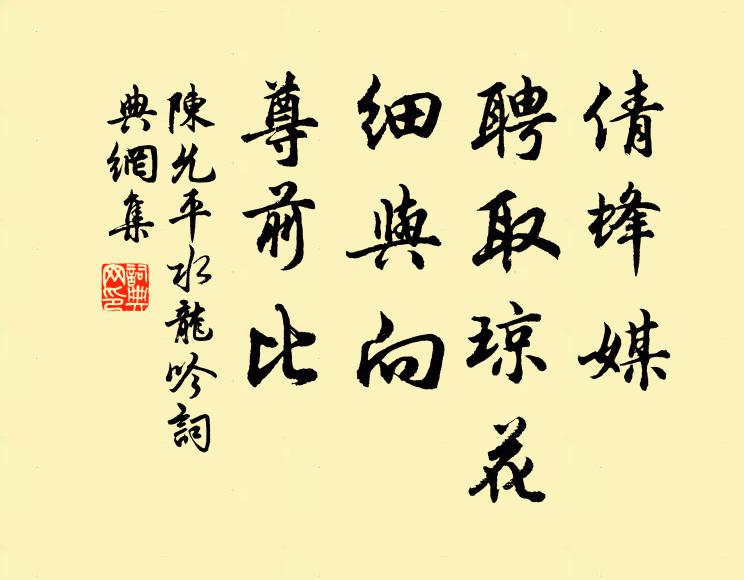 倩蜂媒
聘取琼花
细与向
尊前比
陳允平水龍吟詞
典網集
詞典網印